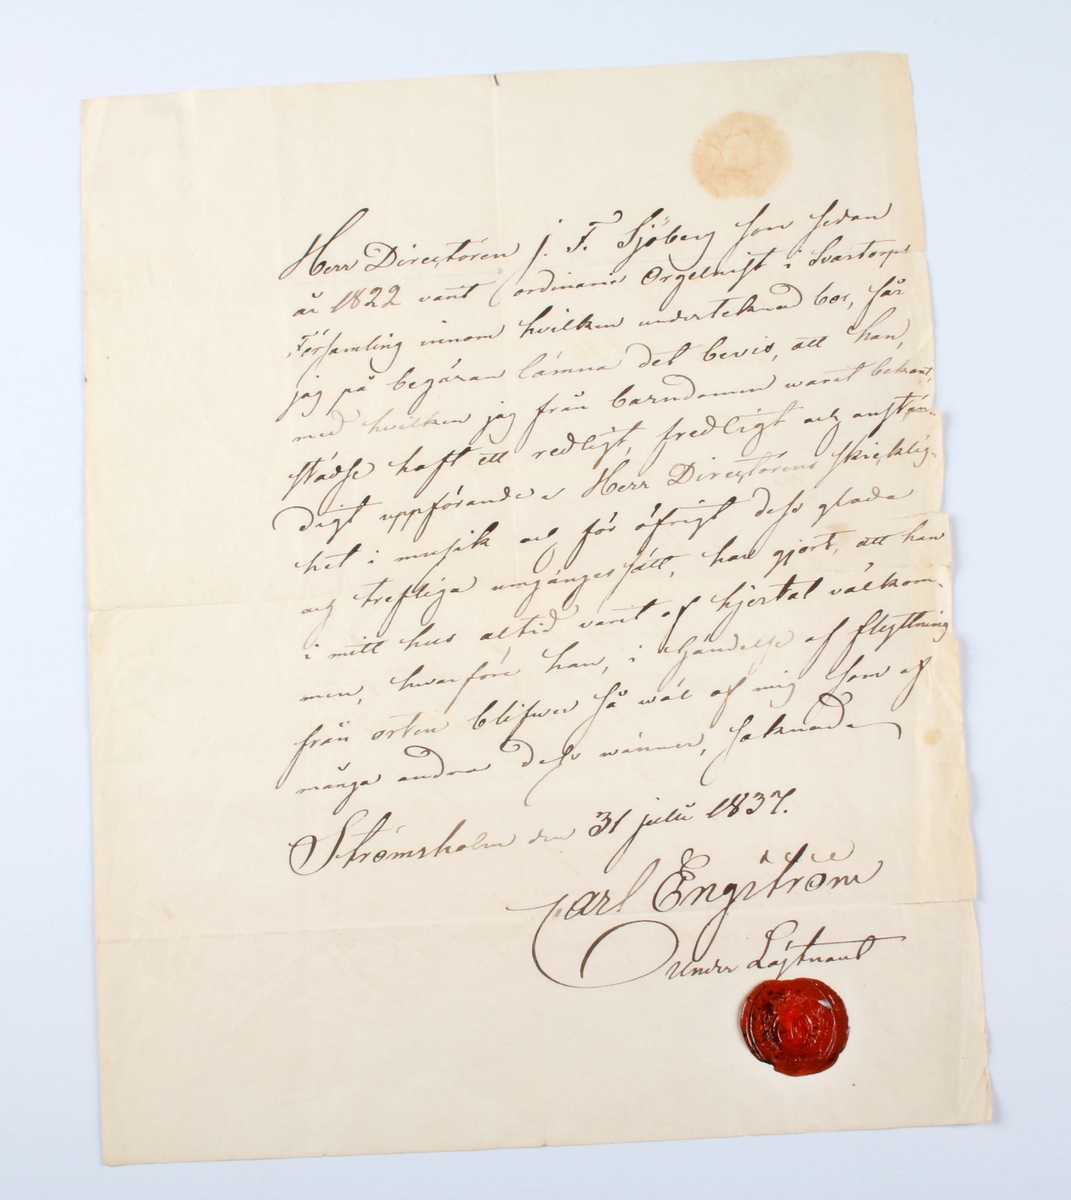 Herr Directören J. F. Sjöberg som sedan
år 1822 varit ordinarie Orgelnist i Svartorps
Församling innom hvilken underteknad bor, får
jag på begäran lämna det bevis, att han,
med hvilken jag från barndomen warit bekant,
städse haft ett redligt, fredligt och anstän-
digt uppförande Herr Directörens skicklig-
het i musik och för öfrigt dess glada
och trefliga umgängessätt, har gjort, att han
i mitt hus altid varit af hjertat välkom-
men, hvarföre han, i händelse af flyttning
från orten blifwer så wäl af mig som af
många andra dess wänner, saknad
Strömsholm den 31 julii 1837.
Carl Engström
Under Löjtnant